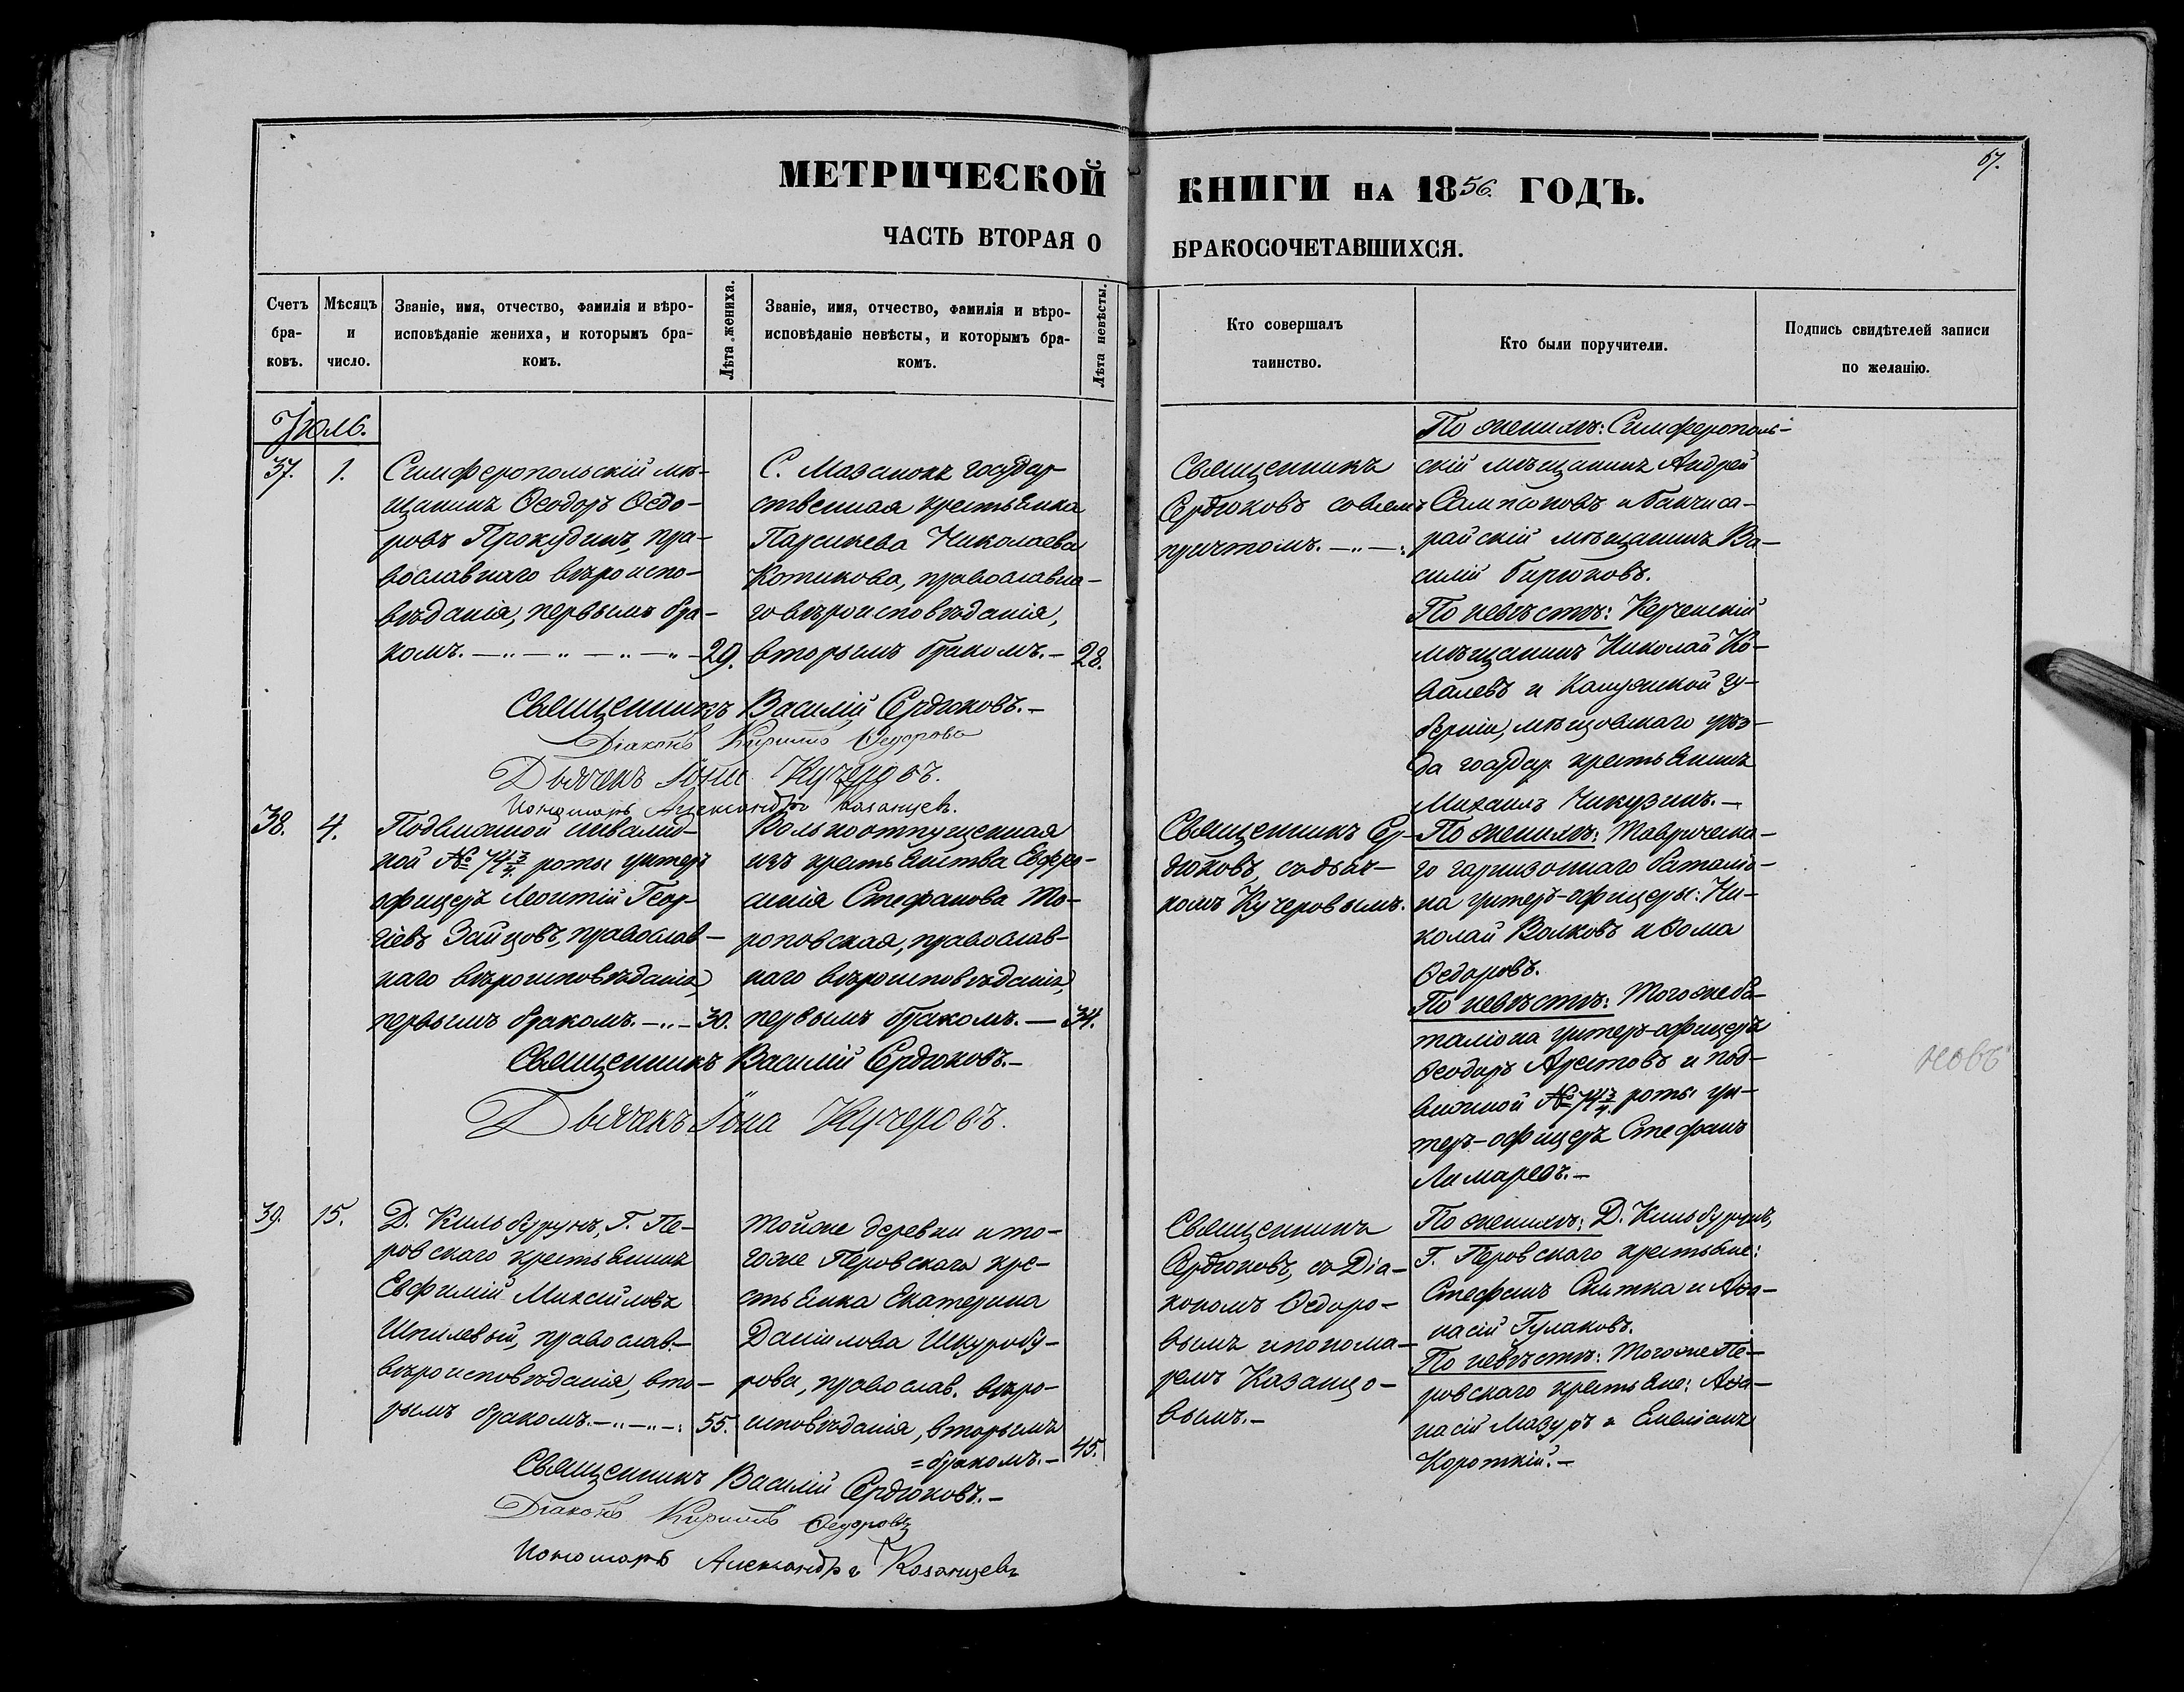 67.
МЕТРИЧЕСКОЙ КНИГИ НА 1856. ГОДЪ.
ЧАСТЬ ВТОРАЯ О БРАКОСОЧЕТАВШИХСЯ.
Счетъ браковъ.
Мѣсяцъ и число.
Званіе, имя, отчество, фамилія и вѣро-
исповѣданіе жениха, и которымъ бра-
комъ.
Лѣта жениха.
Званіе, имя, отчество, фамилія и вѣро-
исповѣданіе невѣсты, и которымъ бра-
комъ.
Лѣта невѣсты.
Кто совершалъ
таинство.
Кто были поручители.
Подпись свидѣтелей записи
по желанію.
Іюль.
37. 1.
Симферопольскій мѣ-
щанинъ Ѳеодоръ Ѳедо-
ровъ Прокудинъ, пра-
вославнаго вѣроиспо-
вѣданія, первымъ бра-
комъ. 29.
С. Мазанокъ государ-
ственная крестьянка
Параскева Николаева
Котикова, православна-
го вѣроисповѣданія,
вторымъ бракомъ. 28.
Священникъ
Сердюковъ со всемъ
причтомъ.
По женихѣ: Симферополь-
скій мѣщанинъ Андрей
Сампсоновъ и бахчиса-
райскій мѣщанинъ Ва-
силій Бирюковъ.
По невѣстѣ: Керченскій
мѣщанинъ Николай Ко-
валевъ и Калужской гу-
берніи, мѣщовскаго уѣз-
да государ. крестьянинъ
Михаилъ Чикузинъ.
Священникъ Василій Сердюковъ.
Діаконъ Кириллъ Ѳедоровъ
Дьячекъ Іона Кучеровъ.
Пономарь Александръ Казанцевъ.
38. 4.
Подвижной инвалид-
ной № 74 3/4 роты унтеръ
офицеръ Леонтій Геор-
гіевъ Зайцовъ, православ-
наго вѣроисповѣданія,
первымъ бракомъ. 30.
Вольноотпущенная
изъ крестьянства Евфро-
синія Стефанова То-
роповская, православ-
наго вѣроисповѣданія,
первымъ бракомъ. 34.
Священникъ Сер-
дюковъ, съ дьяч-
комъ Кучеровымъ.
По женихѣ: Таврическа-
го гарнизоннаго баталіо-
на унтеръ-офицеры: Ни-
колай Волковъ и Ѳома
Ѳедоровъ.
По невѣстѣ: Того же ба-
таліона унтеръ-офицеръ
Ѳеодоръ Арестовъ и под-
вижной № 74 3/4 роты ун-
теръ-офицеръ Стефанъ
Лимаревъ.
Священникъ Василій Сердюковъ.
Дьячекъ Іона Кучеровъ.
39. 15.
Д. Кильбурунъ, Г. Пе-
ровскаго крестьянинъ
Евфимій Михайловъ
Шпилевый, православ.
вѣроисповѣданія, вто-
рымъ бракомъ. 55.
Той же деревни и то-
гоже Перовскаго кре-
стьянка Екатерина
Даніилова Шкуробу-
рова, православ. вѣро-
исповѣданія, вторымъ
=бракомъ. 45.
Священникъ
Сердюковъ, съ Діа-
кономъ Ѳедоро-
вымъ и понома-
ремъ Казанцо-
вымъ.
По женихѣ: Д. Кильбурунъ,
Г. Перовскаго крестьяне:
Стефанъ Скитка и Аѳа-
насій Гулаковъ.
По невѣстѣ: Тогоже Пе-
ровскаго крестьяне: Аѳа-
насій Мазуръ и Емеліанъ
Короткій.
Священникъ Василій Сердюковъ.
Діаконъ Кириллъ Ѳедоровъ
Пономарь Александръ Казанцевъ